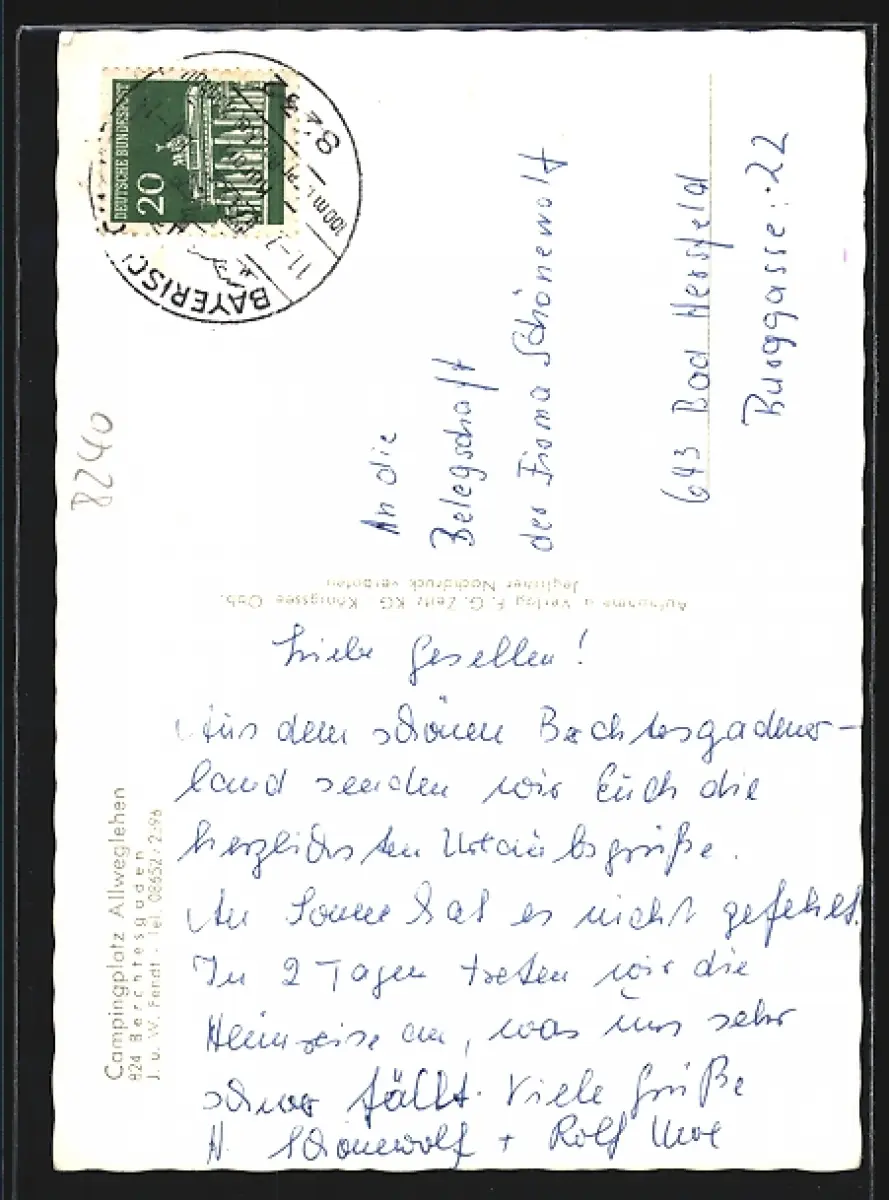 Liebe Gesellen!
Aus dem schönen Berchtesgadener-
land senden wir Euch die
herzlichsten Urlaubsgrüße.
An Sonne hat es nicht gefehlt.
In 2 Tagen treten wir die
Heimreise an, was uns sehr
schwer fällt. Viele Grüße
H. Schönewolf + Rolf
An die
Belegschaft
der Firma Schönewolf
643 Bad Hersfeld
Burggasse: 22
DEUTSCHE BUNDESPOST
20
824
BAYERISCH
8240
Aufnahme u. Verlag F. G. Zeitz KG. Königssee Obb.
Jeglicher Nachdruck verboten
Campingplatz Allweglehen
824 Berchtesgaden
J. u. W. Fendt - Tel. 08652/2396